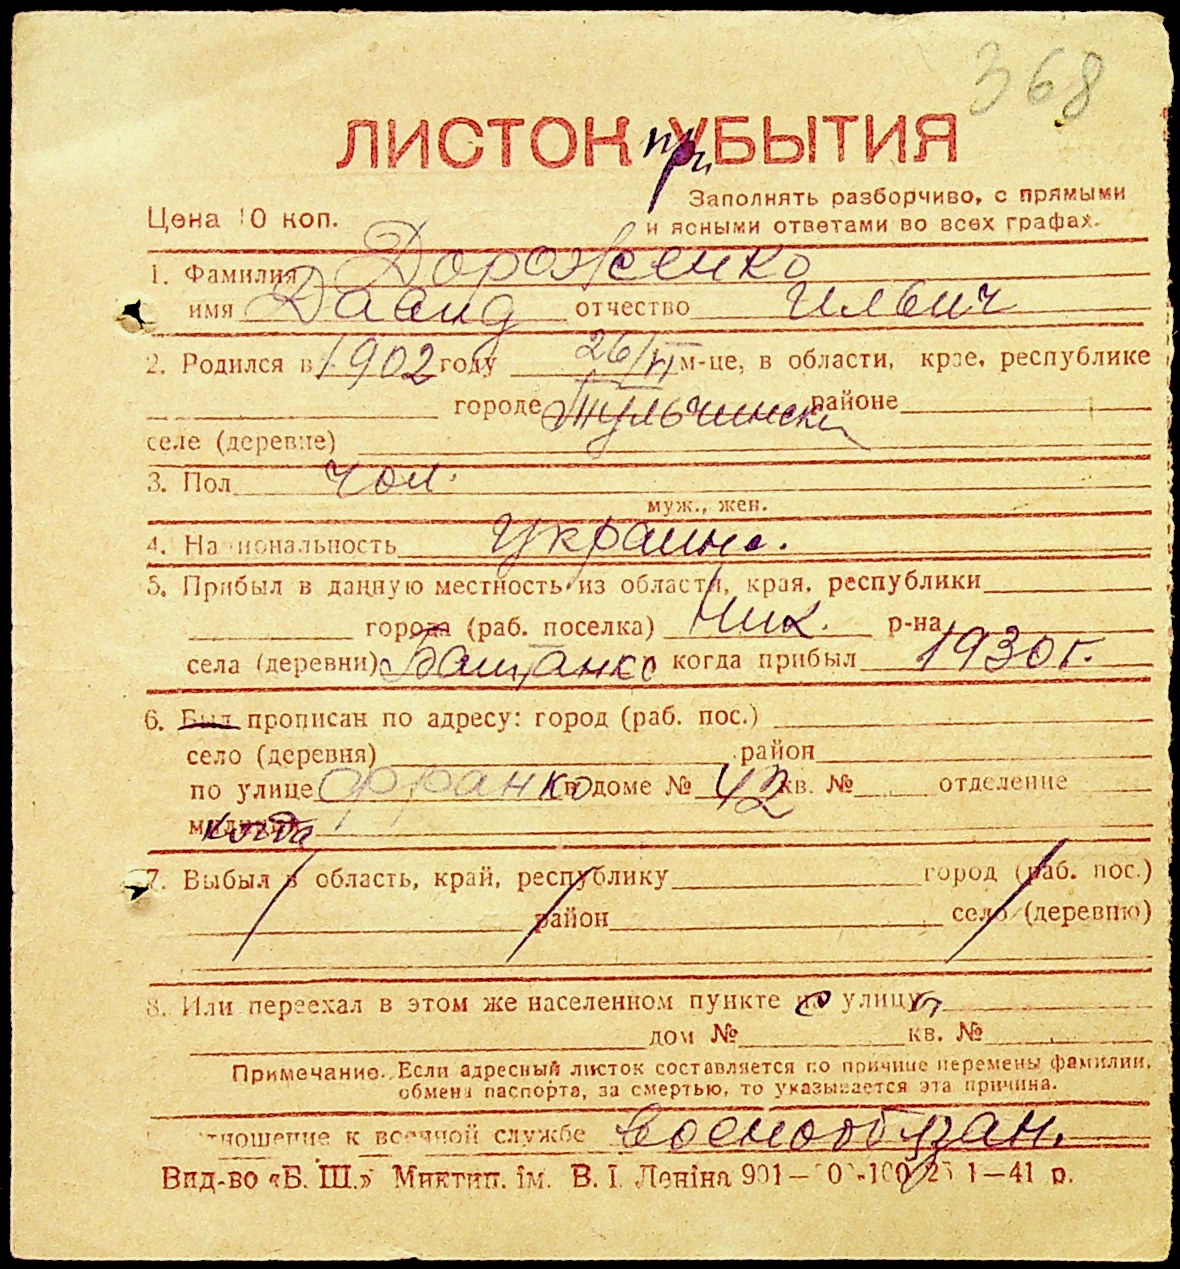 368
ЛИСТОК при УБЫТИЯ
Заполнять разборчиво, с прямыми
Цена 10 коп. и ясными ответами во всех графах.
1. Фамилия Дороженко
имя Давид отчество Ильич
2. Родился в 1902 году 26/VI м-це, в области, крае, республике
городе Тульчински районе
селе (деревне)
3. Пол чол.
муж., жен.
4. Национальность украине.
5. Прибыл в данную местность из области, края, республики
города (раб. поселка) Ник. р-на
села (деревни) Баштанко когда прибыл 1930 г.
6. Был прописан по адресу: город (раб. пос.)
село (деревня) район
по улице Франко в доме № 42 кв. № отделение
когда
7. Выбыл в область, край, республику город (раб. пос.)
район село (деревню)
8. Или переехал в этом же населенном пункте с улицы
дом № кв. №
Примечание. Если адресный листок составляется по причине перемены фамилии,
обмена паспорта, за смертью, то указывается эта причина.
отношение к военной службе военообязан.
Вид-во «Б. Ш.» Миктип. ім. В. І. Леніна 901— 1—41 р.